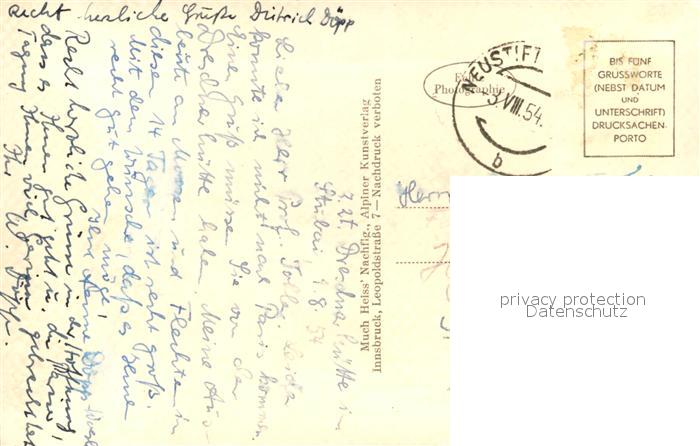 z.Zt. Dresdner Hütte im
Stubai 1.8.54
Lieber Herr Prof. Leider
konnte ich nicht nach Paris kommen.
Einen Gruß müssen Sie von der
Dresdner Hütte haben. Meine Aus-
beute an Moosen und Flechten in
diesen 14 Tagen ist recht groß.
Mit dem Wunsche, daß es Ihnen
recht gut gehen möge,
Ihre Hanne Döpp
Recht herzliche Grüsse in der Hoffnung,
dass es Ihnen gut geht u. die Pariser
Tagung Ihnen viel gebracht hat
Ihr W. Döpp.
Recht herzliche Grüße Dietrich Döpp
Much Heiss' Nachflg., Alpiner Kunstverlag
Innsbruck, Leopoldstraße 7 — Nachdruck verboten
Photographie
NEUSTIFT
3.VIII.54.
b
BIS FÜNF
GRUSSWORTE
(NEBST DATUM
UND
UNTERSCHRIFT)
DRUCKSACHEN-
PORTO
Herrn
privacy protection
Datenschutz